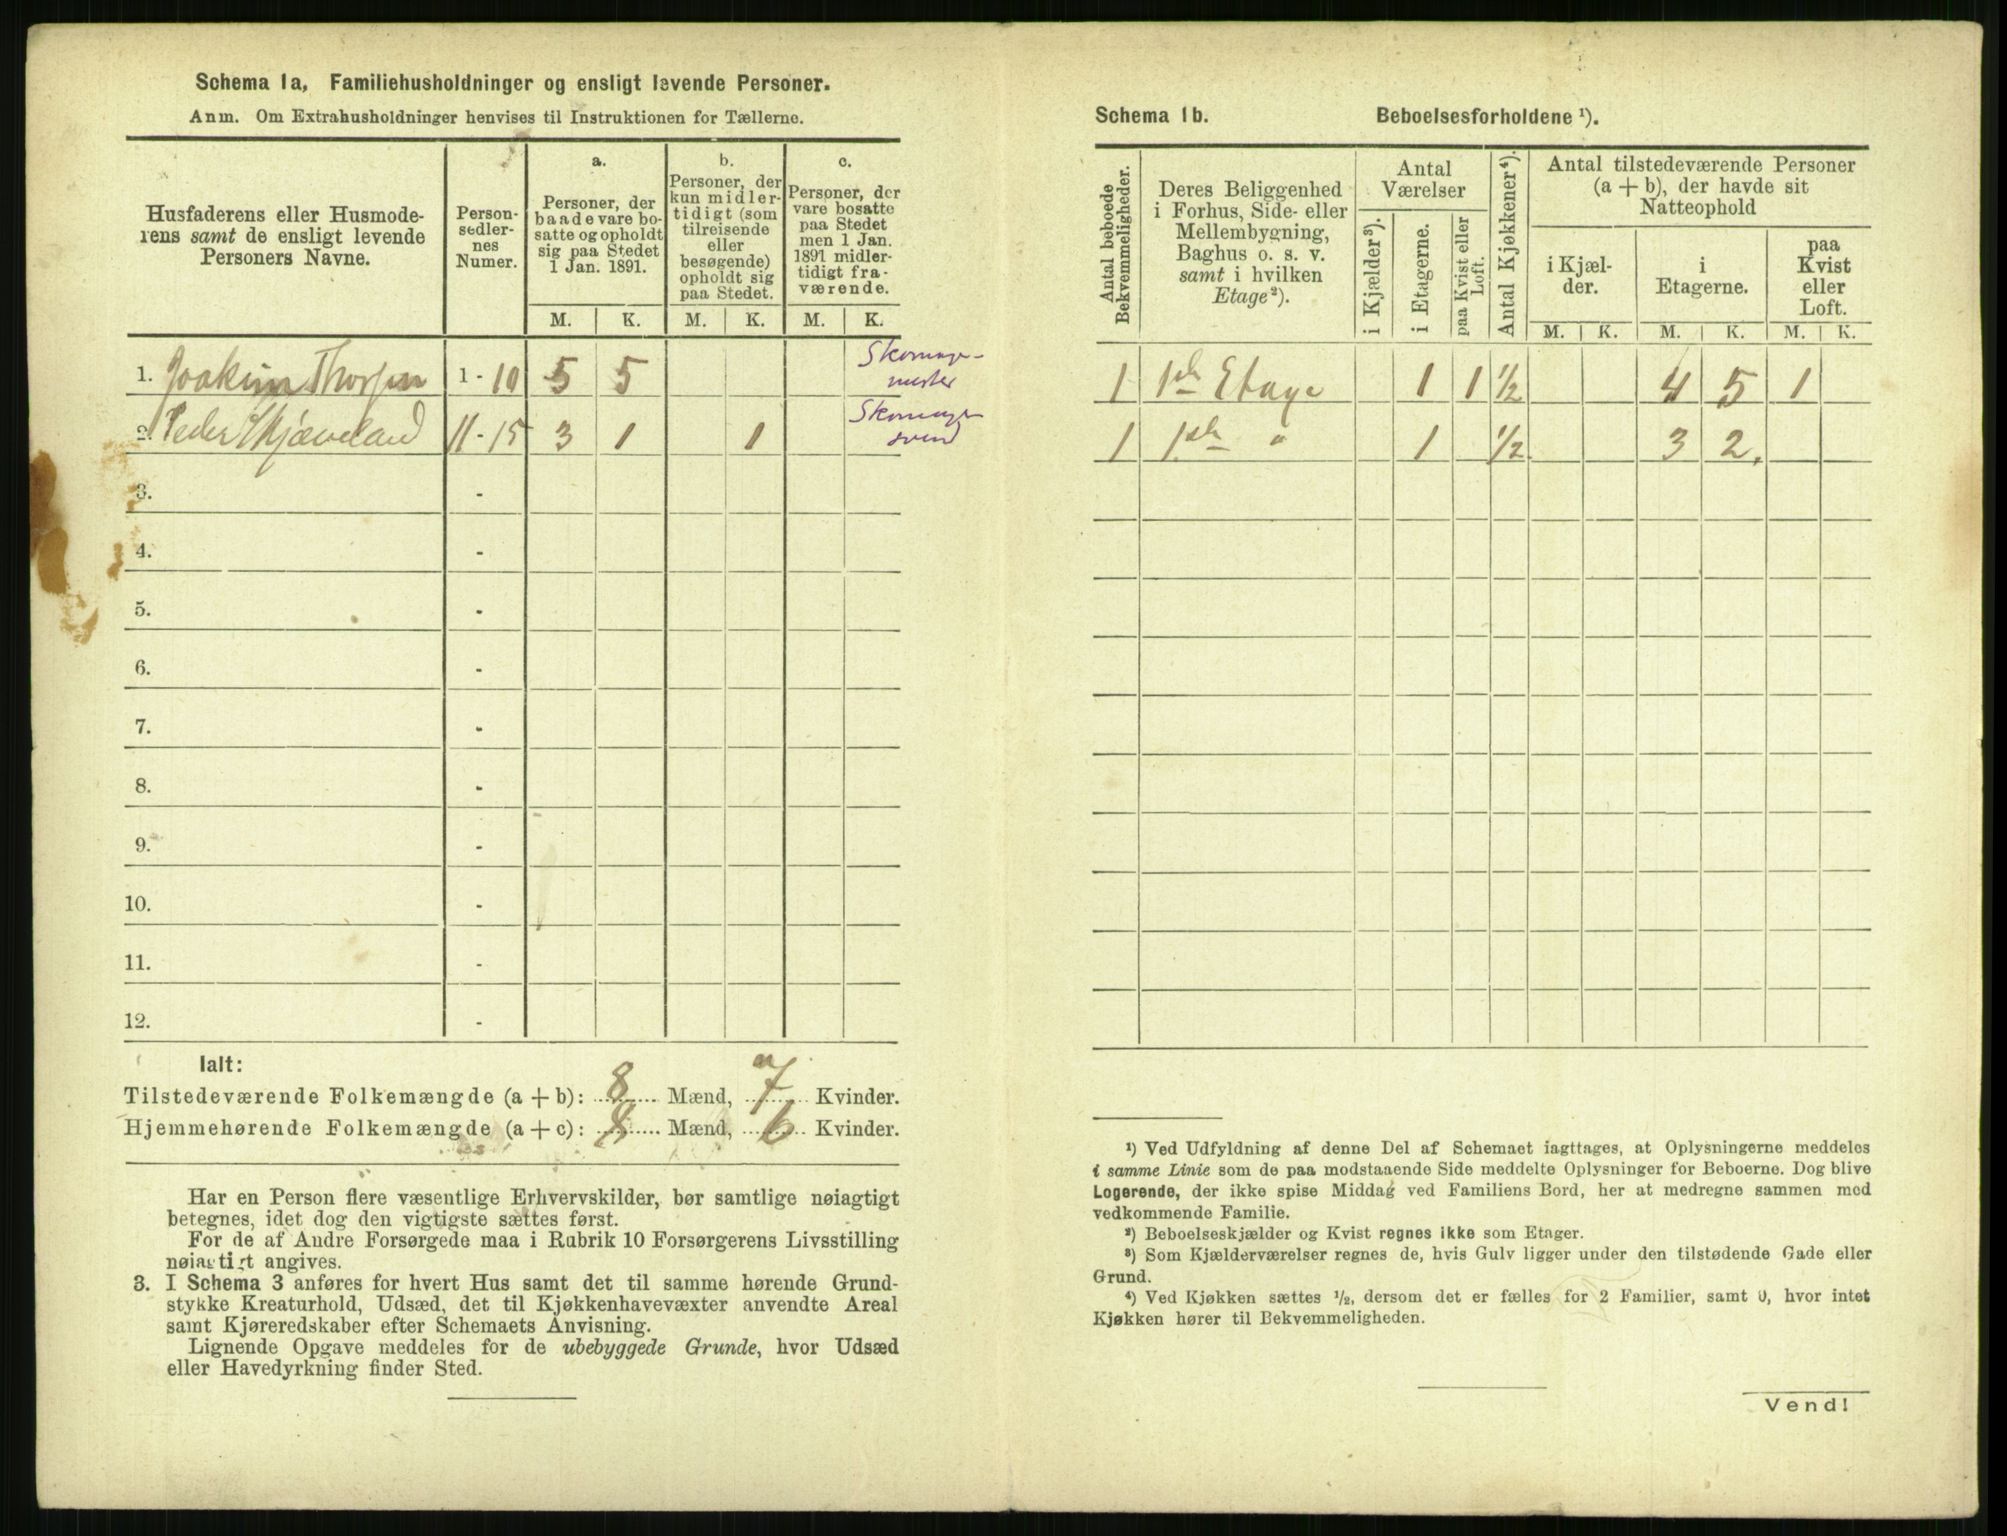 Schema 1a, Familiehusholdninger og ensligt levende Personer.
Anm. Om Extrahusholdninger henvises til Instruktionen for Tællerne.
Husfaderens eller Husmode-
rens samt de ensligt levende
Personers Navne.
Person-
sedler-
nes
Numer.
a.
Personer, der
baade vare bo-
satte og opholdt
sig paa Stedet
1 Jan. 1891.
b.
Personer, der
kun midler-
tidigt (som
tilreisende
eller
besøgende)
opholdt sig
paa Stedet.
c.
Personer, der
vare bosatte
paa Stedet
men 1 Jan.
1891 midler-
tidigt fra-
værende.
M. K. M. K. M. K.
1. Joakim Thorsen 1 - 10 5 5 Skomager-
mester
2. Peder Skjæveland 11 - 15 3 1 1 Skomager
svend
3. -
4. -
5. -
6. -
7. -
8. -
9. -
10. -
11. -
12. -
Ialt:
Tilstedeværende Folkemængde (a + b): 8 Mænd, 7 Kvinder.
Hjemmehørende Folkemængde (a + c): 8 Mænd, 6 Kvinder.
Har en Person flere væsentlige Erhvervskilder, bør samtlige nøiagtigt
betegnes, idet dog den vigtigste sættes først.
For de af Andre Forsørgede maa i Rubrik 10 Forsørgerens Livsstilling
nøiagtigt angives.
3. I Schema 3 anføres for hvert Hus samt det til samme hørende Grund-
stykke Kreaturhold, Udsæd, det til Kjøkkenhavevæxter anvendte Areal
samt Kjøreredskaber efter Schemaets Anvisning.
Lignende Opgave meddeles for de ubebyggede Grunde, hvor Udsæd
eller Havedyrkning finder Sted.
Schema 1b. Beboelsesforholdene ¹).
Antal beboede
Bekvemmeligheder.
Deres Beliggenhed
i Forhus, Side- eller
Mellembygning,
Baghus o. s. v.
samt i hvilken
Etage²).
Antal
Værelser
i Kjælder³).
i Etagerne.
paa Kvist eller
Loft.
Antal Kjøkkener⁴).
Antal tilstedeværende Personer
(a + b), der havde sit
Natteophold
i Kjæl-
der.
i
Etagerne.
paa
Kvist
eller
Loft.
M. K. M. K. M. K.
1 1ste Etage 1 1 1/2 4 5 1
1 1ste " 1 1/2 3 2.
¹) Ved Udfyldning af denne Del af Schemaet iagttages, at Oplysningerne meddeles
i samme Linie som de paa modstaaende Side meddelte Oplysninger for Beboerne. Dog blive
Logerende, der ikke spise Middag ved Familiens Bord, her at medregne sammen med
vedkommende Familie.
²) Beboelseskjælder og Kvist regnes ikke som Etager.
³) Som Kjælderværelser regnes de, hvis Gulv ligger under den tilstødende Gade eller
Grund.
⁴) Ved Kjøkken sættes ½, dersom det er fælles for 2 Familier, samt 0, hvor intet
Kjøkken hører til Bekvemmeligheden.
Vend!